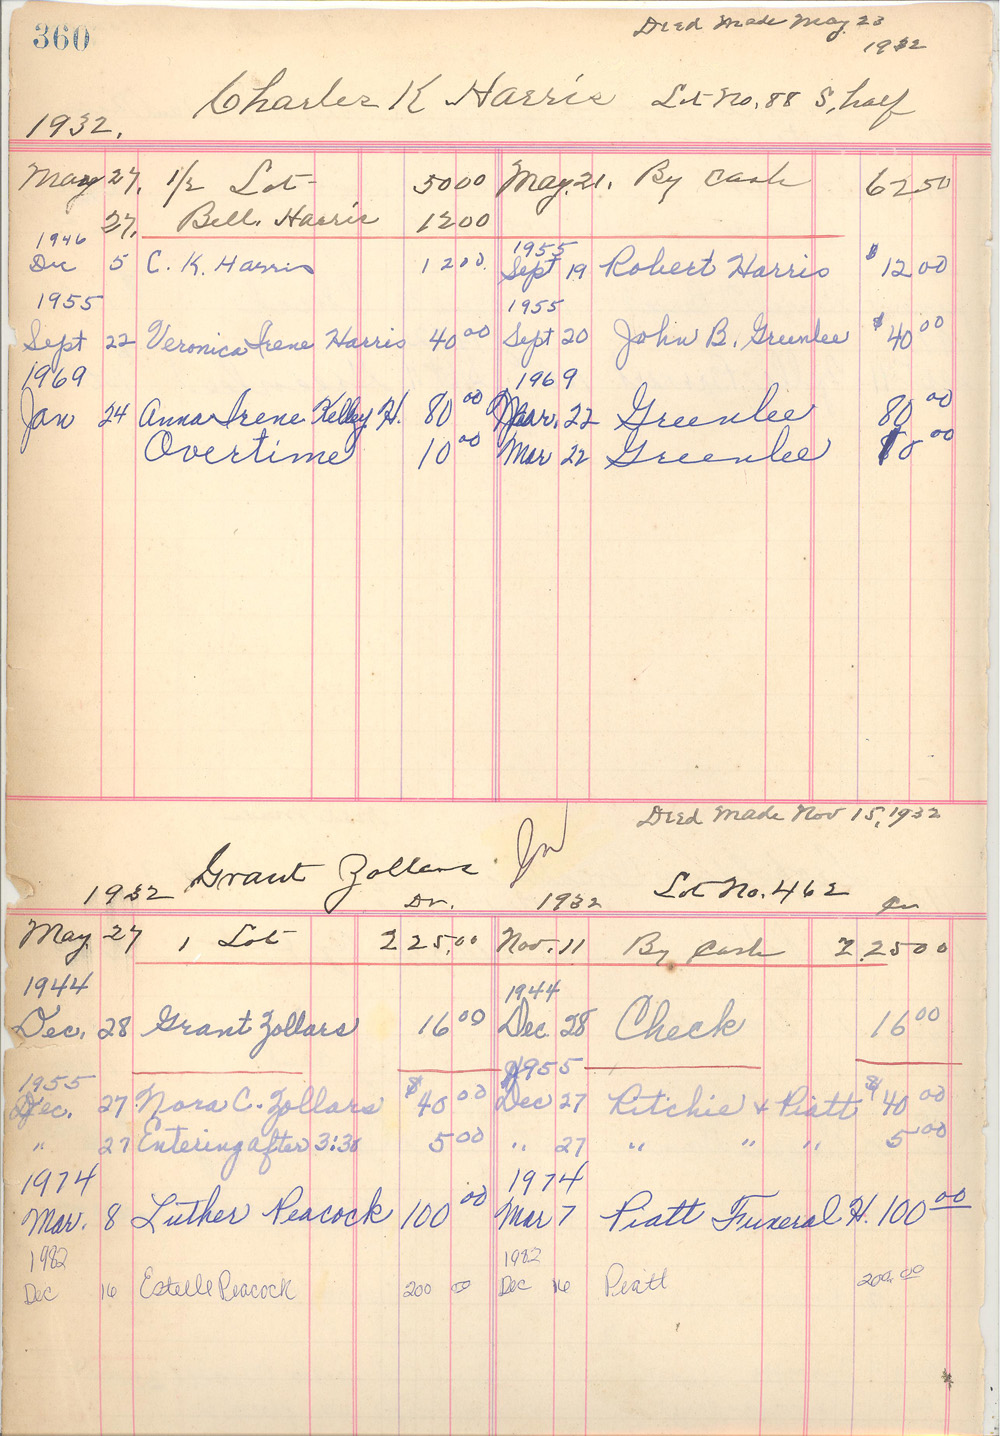 360
Deed Made May. 23
1932
Charles K Harris Lot No. 88 S, half
1932.
May 27. 1/2 Lot 5000 May. 21. By Cash 6250
27. Bell. Harris 1200
1946 1955
Dec 5 C. K. Harris 1200. Sept 19 Robert Harris $ 12 00
1955 1955
Sept 22 Veronica Irene Harris 40 00 Sept 20 John B. Greenlee $ 40 00
1969 1969
Jan 24 Anna Irene Kelley H. 80 00 Mar. 22 Greenlee 80 00
Overtime 10 00 Mar 22 Greenlee 10 00
Deed Made Nov 15, 1932
Grant Zollars
1932 Dr. 1932 Lot No. 462 Cr
May 27 1 Lot 225.00 Nov. 11 By Cash 225 00
1944 1944
Dec. 28 Grant Zollars 16 00 Dec. 28 Check 16 00
1955 1955
Dec. 27 Nora C. Zollars $ 40 00 Dec 27 Ritchie & Piatt $ 40 00
" 27 Entering after 3:30 5 00 " 27 " " " 5 00
1974 1974
Mar. 8 Luther Peacock 100 00 Mar 7 Piatt Funeral H. 100 00
1982 1982
Dec 16 Estelle Peacock 200 00 Dec 16 Piatt 200.00